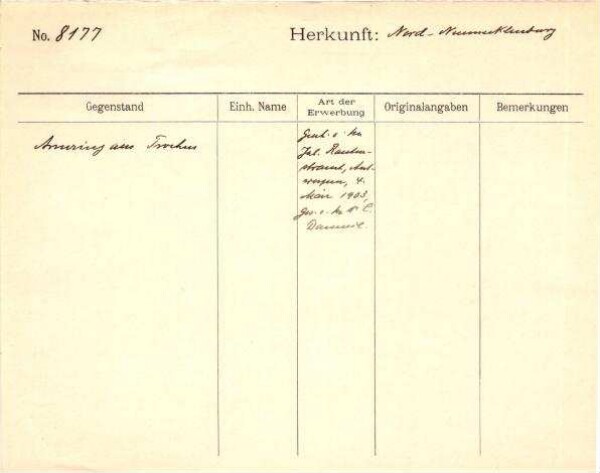 No. 8177
Herkunft: Nord-Neumecklenburg
Gegenstand
Einh. Name
Art der Erwerbung
Originalangaben
Bemerkungen
Armring aus Trochus
Gesch. v. Hn
Jul. Rauten-
strauch, Ant-
werpen, 4.
März 1903,
ges. v. Hn